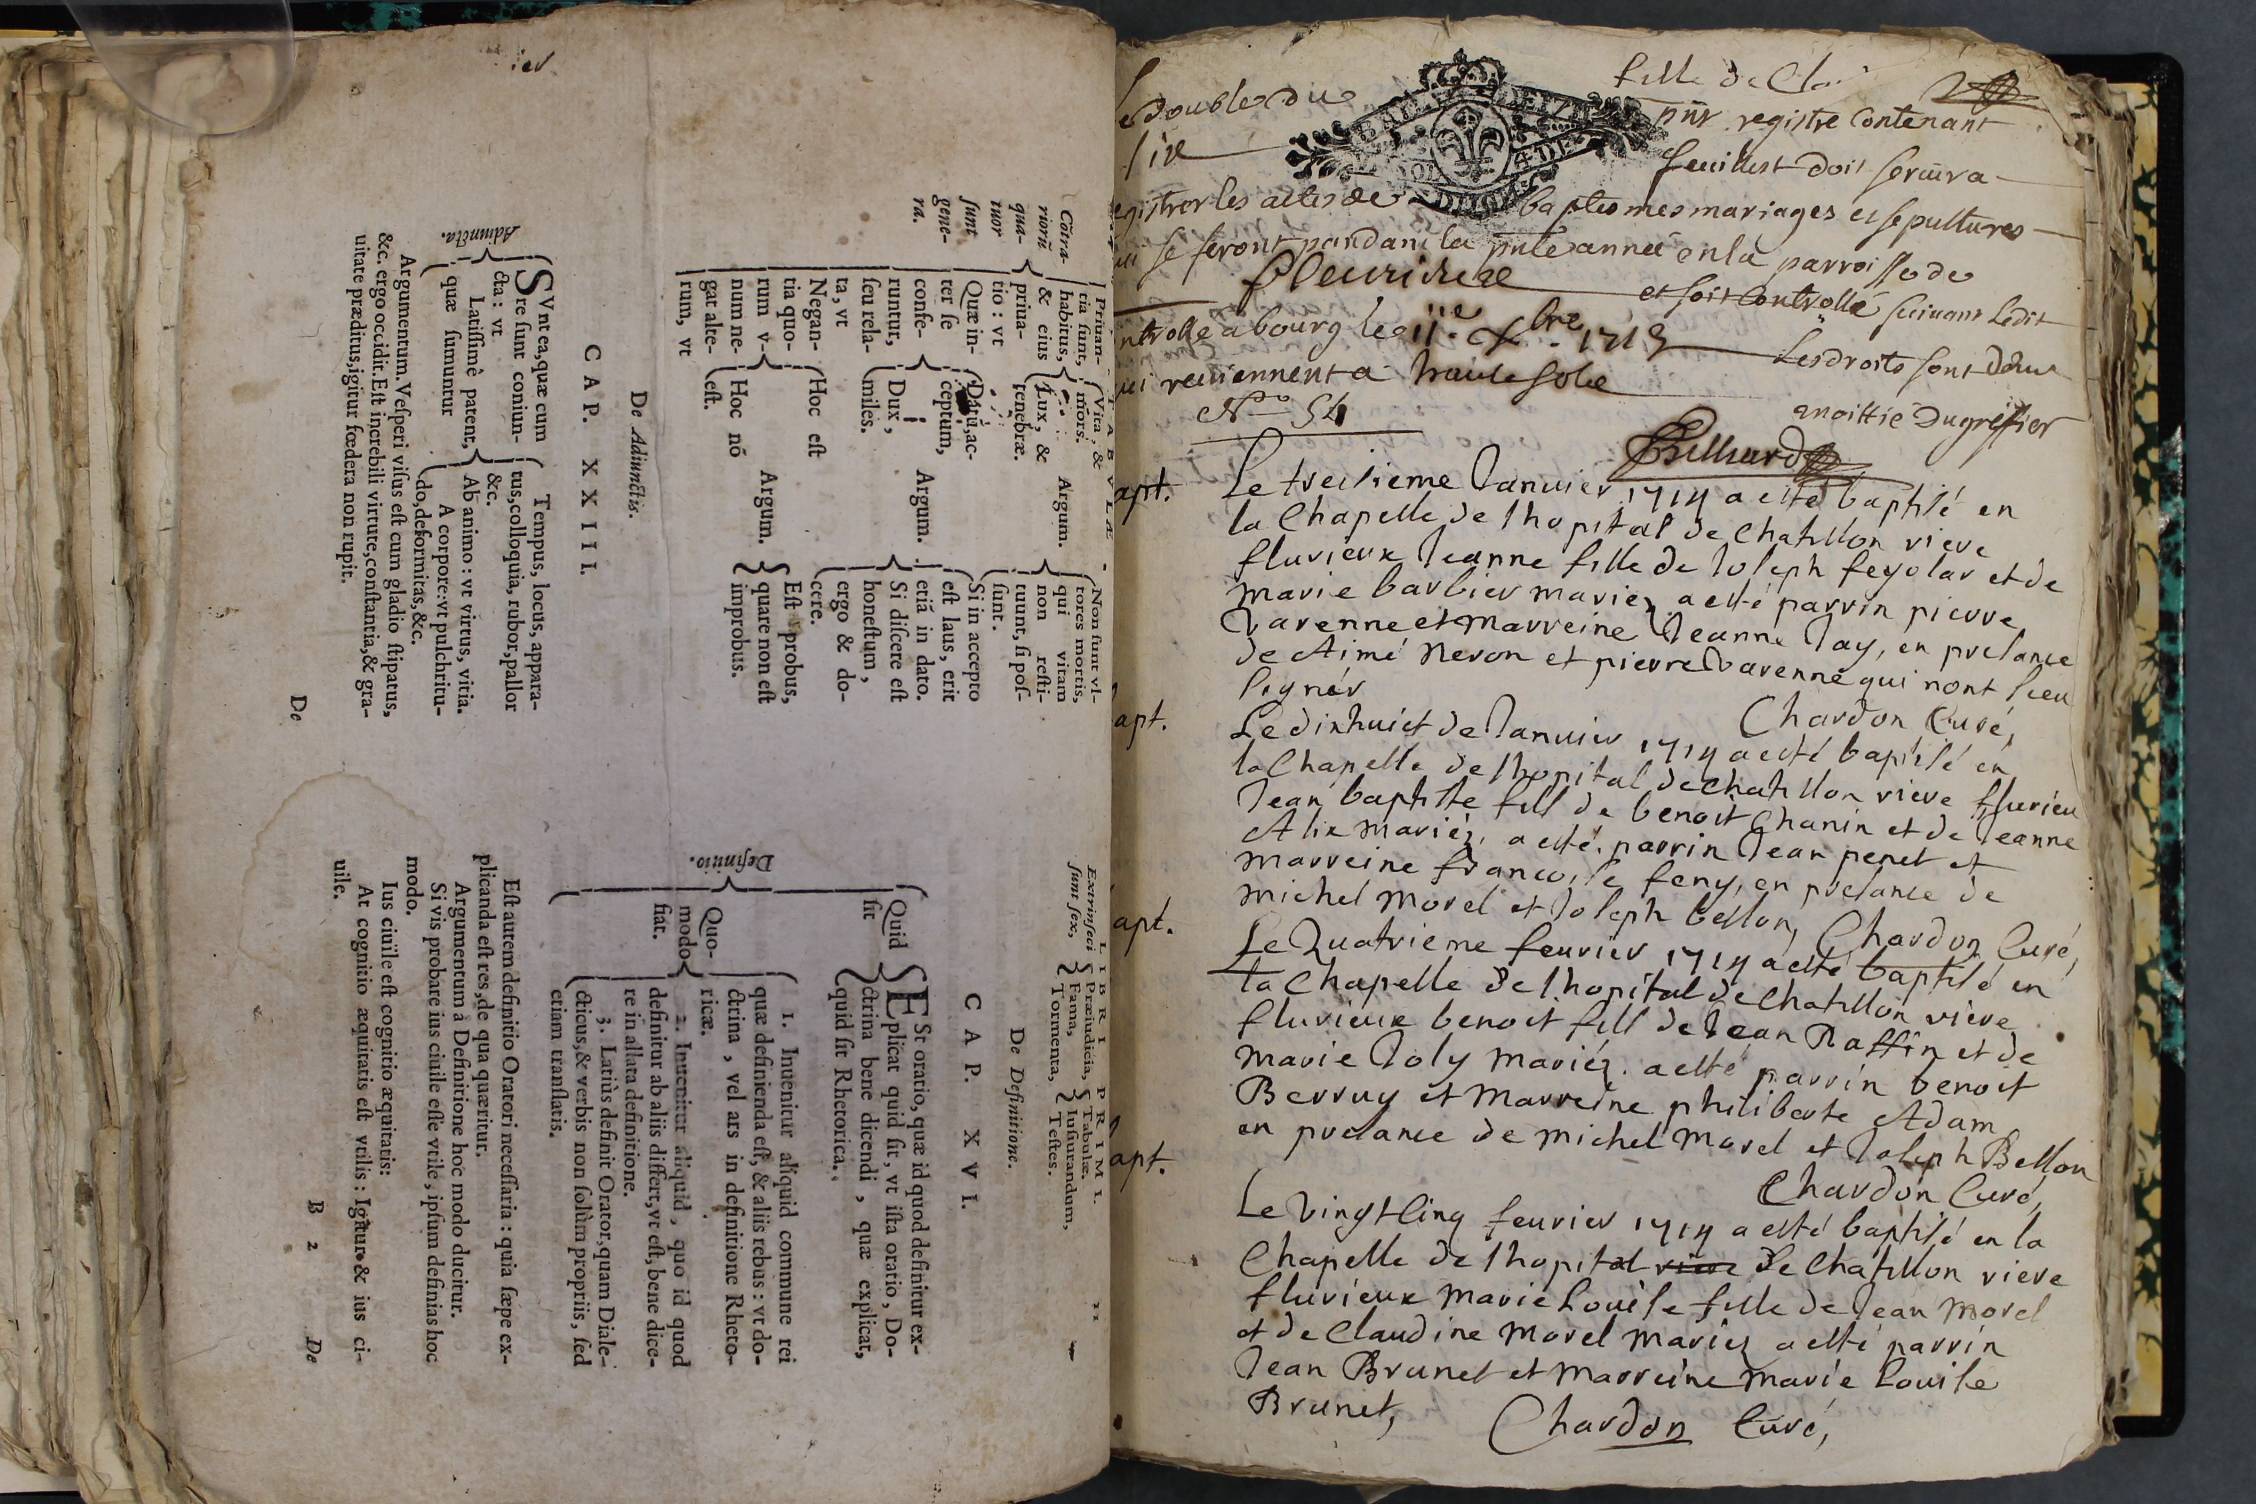 TABVLÆ
Cõtra-
riorũ
qua-
tuor
ſunt
gene-
ra.
Priuan-
tia ſunt,
habitus,
& eius
priua-
tio : vt
Vita, &
mors.
Lux, &
tenebræ.
Argum.
Non ſunt vl-
tores mortis,
qui vitam
non reſti-
tuunt, ſi poſ-
ſunt.
Quæ in-
ter ſe
confe-
runtur,
ſeu rela-
ta, vt
Datũ, ac-
ceptum,
Dux,
miles.
Argum.
Si in accepto
eſt laus, erit
etiã in dato.
Si diſcere eſt
honeſtum,
ergo & do-
cere.
Negan-
tia quo-
rum v-
num ne-
gat alte-
rum, vt
Hoc eſt
Hoc nõ
eſt.
Argum.
Eſt probus,
quare non eſt
improbus.
De Adiunctis.
CAP. XXIII.
Adiuncta.
SVnt ea, quæ cum
re ſunt coniun-
cta : vt
Latiſſimè patent,
quæ ſumuntur
Tempus, locus, appara-
tus, colloquia, rubor, pallor
&c.
Ab animo : vt virtus, vitia.
A corpore: vt pulchritu-
do, deformitas, &c.
Argumentum. Veſperi viſus eſt cum gladio ſtipatus,
&c. ergo occidit. Eſt incredibili virtute, conſtantia, & gra-
uitate præditus, igitur fœdera non rupit.
De
LIBRI PRIMI.
Extrinſeci
ſunt ſex,
Præiudicia,
Fama,
Tormenta,
Tabulæ.
Iuſiurandum,
Teſtes.
De Definitione.
CAP. XVI.
Definitio.
Quid
ſit
ESt oratio, quæ id quod definitur ex-
plicat quid ſit, vt iſta oratio, Do-
ctrina bene dicendi, quæ explicat,
quid ſit Rhetorica.
Quo-
modo
fiat.
1. Inuenitur aliquid commune rei
quæ definienda eſt, & aliis rebus : vt do-
ctrina, vel ars in definitione Rheto-
ricæ.
2. Inuenitur aliquid, quo id quod
definitur ab aliis differt, vt eſt, bene dice-
re in allata definitione.
3. Latiùs definit Orator, quam Diale-
cticus, & verbis non ſolùm propriis, ſed
etiam tranſlatis.
Eſt autem definitio Oratori neceſſaria : quia ſæpe ex-
plicanda eſt res, de qua quæritur.
Argumentum à Definitione hoc modo ducitur.
Si vis probare ius ciuile eſſe vtile, ipſum definias hoc
modo.
Ius ciuile eſt cognitio æquitatis:
At cognitio æquitatis eſt vtilis : Igitur & ius ci-
uile.
B 2 De
fille de Cla
Double du pnt registre Contenant
feuillest doit servir a
registrer les actes de baptesmes mariages et sepultures
se feront pandant la pnte année en la parroisse de
fleurieux et soit Controllé suivant ledit
ntrolle a bourg le 11e Xbre 1713 Les droits sont deux
reviennent a trante solz
moittié Du greffier
No 54
apt. Le treisieme Januier 1714 a esté baptisé en
la Chapelle de lhopital de Chatillon viere
fluvieux Jeanne fille de Joseph feyolar et de
marie barbier mariez a esté parrin pierre
Varenne et marreine Jeanne Jay, en presance
de Aimé neron et pierre Varenne qui nont sceu
signér
Chardon Curé,
apt. Le dixhuict de Januier 1714 a esté baptisé en
la Chapelle de lhopital de chatillon viere fluvieu
Jean baptiste fill de benoit Chanin et de Jeanne
Alix mariéz, a esté parrin Jean penet et
marreine francoise feny, en presance de
michel morel et Joseph bellon, Chardon Curé,
apt. Le Quatrieme feurier 1714 a esté baptisé en
la Chapelle de lhopital de Chatillon viere
fluvieux benoit fill de Jean Raffin et de
marie Joly mariéz. a esté parrin benoit
Berruy et marreine philiberte Adam
en presance de michel morel et Joseph Bellon
Chardon Curé,
apt. Le vingt cinq feurier 1714 a esté baptisé en la
Chapelle de lhopital viere de Chatillon viere
fluvieux marie Louise fille de Jean morel
et de Claudine morel mariez a esté parrin
Jean Brunet et marreine marie Louise
Brunet,
Chardon Curé,